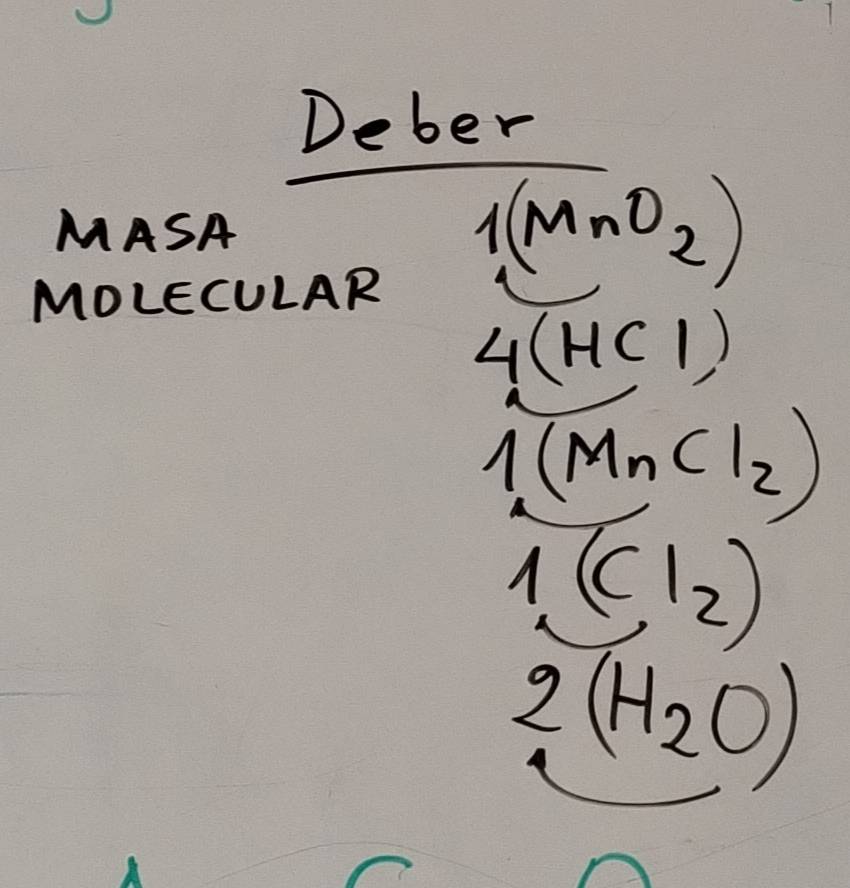 Deber
MASA
MOLECULAR
1(MnO₂)
4(HCl)
1(MnCl₂)
1(Cl₂)
2(H₂O)